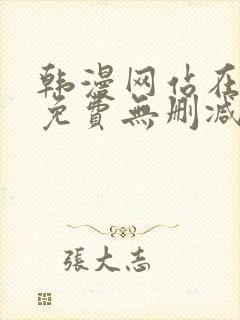 韩漫网估在
免費無删减
張大志